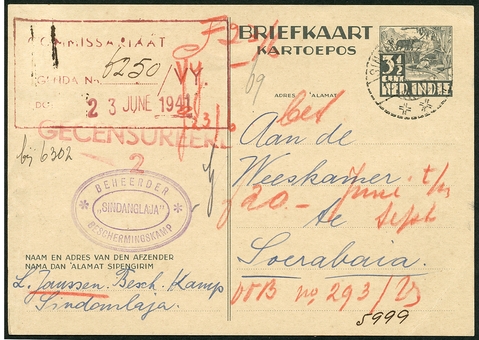 COMMISSARIAAT
AGENDA No. 5250/VY
DD. 23 JUNE 1941
GECENSUREERD
2
bij 6302
BEHEERDER
"SINDANGLAJA"
BESCHERMINGSKAMP
NAAM EN ADRES VAN DEN AFZENDER
NAMA DAN 'ALAMAT SIPENGIRIM
L. Janssen. Besch. Kamp
Sindanlaja.
BRIEFKAART
KARTOEPOS
69
ADRES
'ALAMAT
3½
CENT
NED. INDIË
Aan de
Weeskamer
20.- Juni t/m
te Sept
Soerabaia.
No 293/
5999